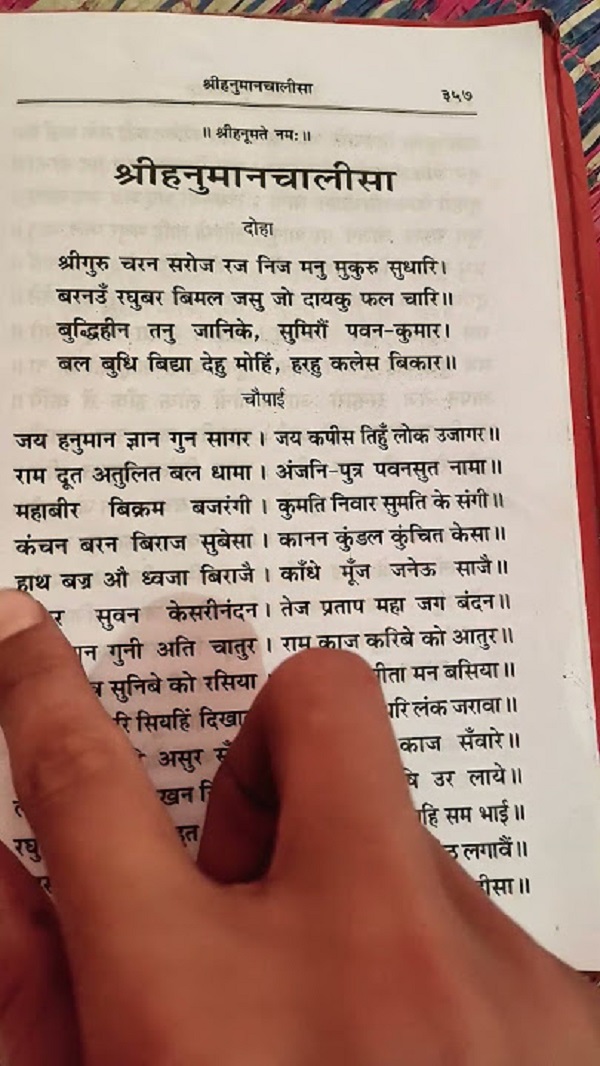 श्रीहनुमानचालीसा ३५७
॥ श्रीहनूमते नमः॥
श्रीहनुमानचालीसा
दोहा
श्रीगुरु चरन सरोज रज निज मनु मुकुरु सुधारि।
बरनउँ रघुबर बिमल जसु जो दायकु फल चारि॥
बुद्धिहीन तनु जानिके, सुमिरौं पवन-कुमार।
बल बुधि बिद्या देहु मोहिं, हरहु कलेस बिकार॥
चौपाई
जय हनुमान ज्ञान गुन सागर। जय कपीस तिहुँ लोक उजागर॥
राम दूत अतुलित बल धामा। अंजनि-पुत्र पवनसुत नामा॥
महाबीर बिक्रम बजरंगी। कुमति निवार सुमति के संगी॥
कंचन बरन बिराज सुबेसा। कानन कुंडल कुंचित केसा॥
हाथ बज्र औ ध्वजा बिराजै। काँधे मूँज जनेऊ साजै॥
सुवन केसरीनंदन। तेज प्रताप महा जग बंदन॥
गुनी अति चातुर। राम काज करिबे को आतुर॥
सुनिबे को रसिया मन बसिया॥
सियहिं लंक जरावा॥
असुर काज सँवारे॥
उर लाये॥
सम भाई॥
लगावैं॥